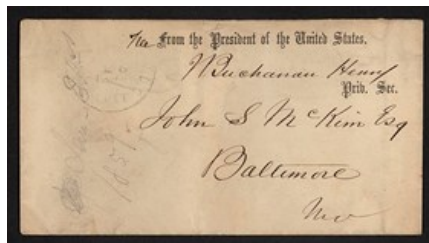 From the President of the United States.
J Buchanan Henry
Priv. Sec.
John S McKim Esq
Baltimore
Md